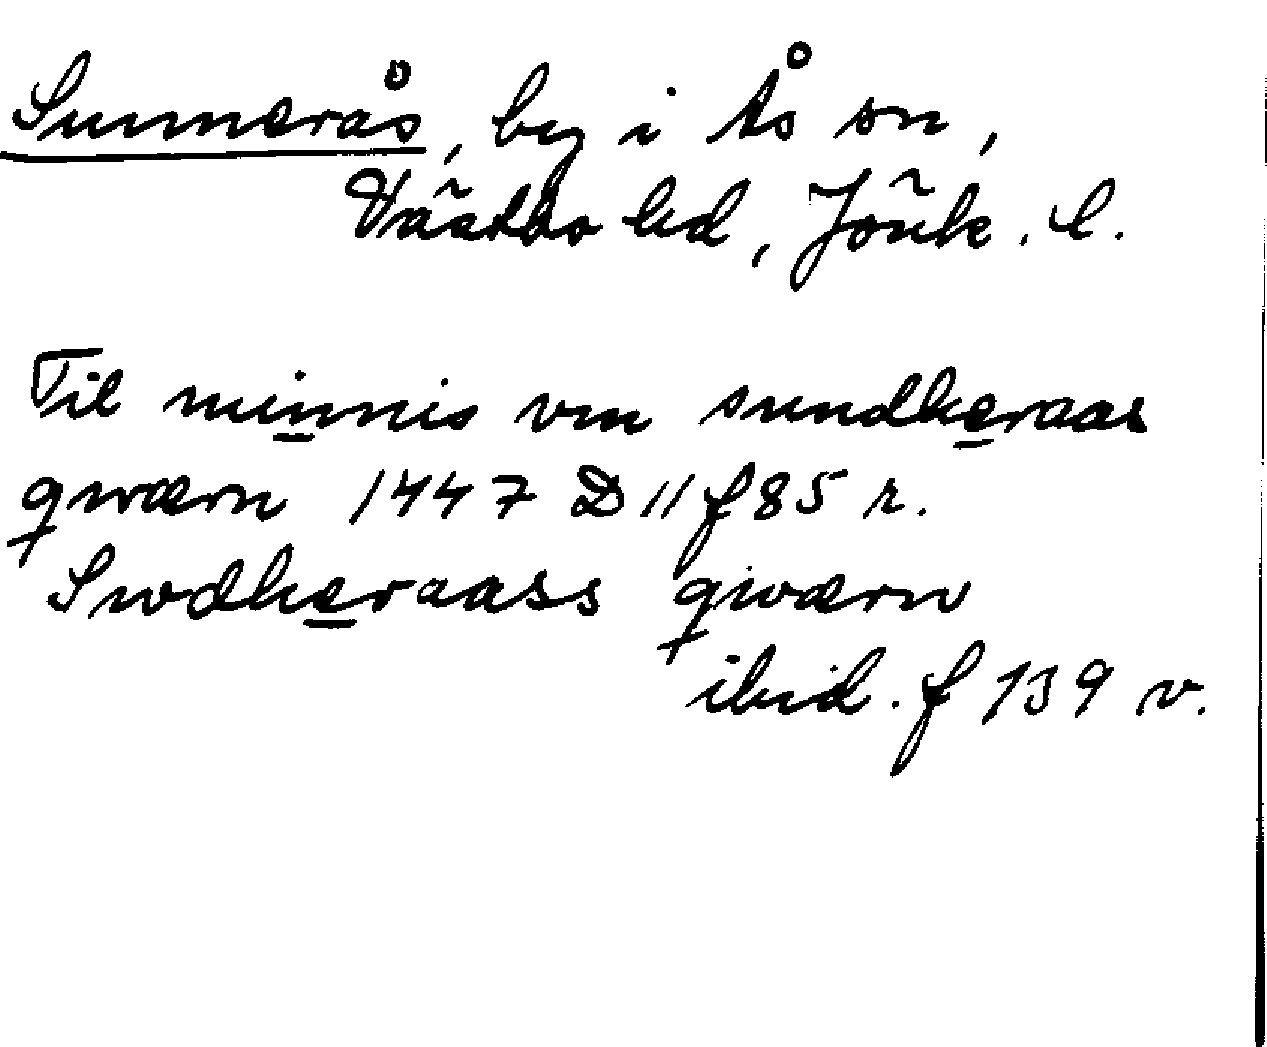 Sunnerås, by i Ås sn,
Västbo hd, Jönk. l.
Til minnis vm sundheraas
qwærn 1447 D 11 f 85 r.
Swdheraass qwærn
ibid. f 139 v.